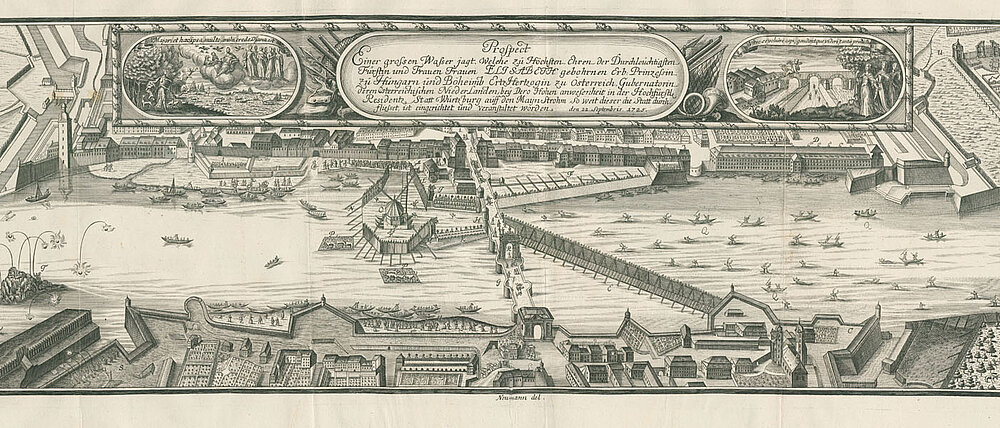 Prospect
Einer grossen Wasser jagt, Welche zu Höchsten Ehren, der Durchleuchtigsten
Fürstin und Frauen Frauen ELISABETH gebohrnen Erb Prinzessin
zu Hungarn und Boheimb Ertz Hertzogin zu Österreich Gubernatorin
deren Österreichischen Niederlanden, bey Dero Hohen anwesenheit in der Hochfürstl.
Residentz Statt Würtzburg auff den Mayn Strohm so weit dieser die Statt durch
fliesset ist eingerichtet und Veranstaltet worden. den 22. Septembris. 1725.
Neumann del.